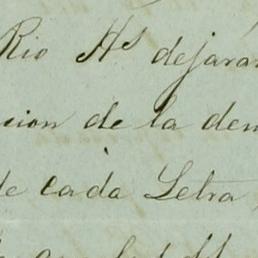 Rio Hs dejara
cion de la den
de cada Letra